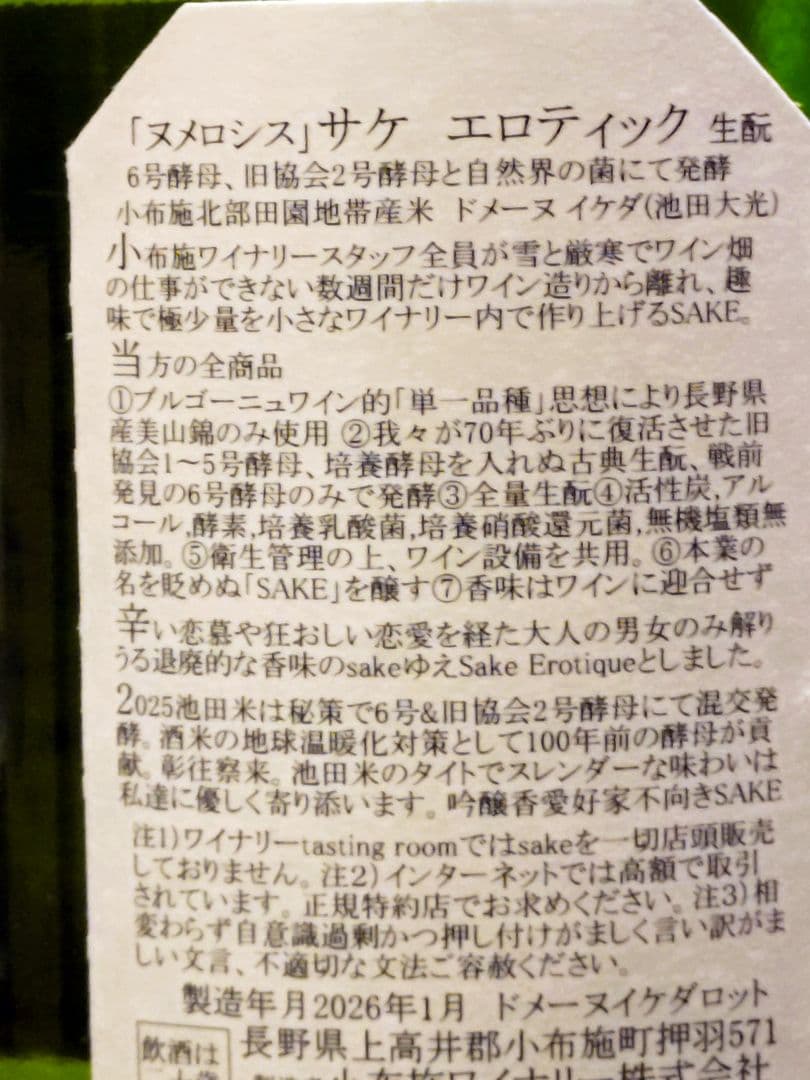 「ヌメロシス」サケ エロティック 生酛
6号酵母、旧協会2号酵母と自然界の菌にて発酵
小布施北部田園地帯産米 ドメーヌ イケダ(池田大光)
小布施ワイナリースタッフ全員が雪と厳寒でワイン畑
の仕事ができない数週間だけワイン造りから離れ、趣
味で極少量を小さなワイナリー内で作り上げるSAKE。
当方の全商品
①ブルゴーニュワイン的「単一品種」思想により長野県
産美山錦のみ使用 ②我々が70年ぶりに復活させた旧
協会1～5号酵母、培養酵母を入れぬ古典生酛、戦前
発見の6号酵母のみで発酵③全量生酛④活性炭,アル
コール,酵素,培養乳酸菌,培養硝酸還元菌,無機塩類無
添加。⑤衛生管理の上、ワイン設備を共用。⑥本業の
名を貶めぬ「SAKE」を醸す⑦香味はワインに迎合せず
辛い恋慕や狂おしい恋愛を経た大人の男女のみ解り
うる退廃的な香味のsakeゆえSake Erotiqueとしました。
2025池田米は秘策で6号&旧協会2号酵母にて混交発
酵。酒米の地球温暖化対策として100年前の酵母が貢
献。彰往察来。池田米のタイトでスレンダーな味わいは
私達に優しく寄り添います。吟醸香愛好家不向きSAKE
注1)ワイナリーtasting roomではsakeを一切店頭販売
しておりません。注2)インターネットでは高額で取引
されています。正規特約店でお求めください。注3)相
変わらず自意識過剰かつ押し付けがましく言い訳がま
しい文言、不適切な文法ご容赦ください。
製造年月2026年1月 ドメーヌイケダロット
長野県上高井郡小布施町押羽571
飲酒は
小布施ワイナリー株式会社